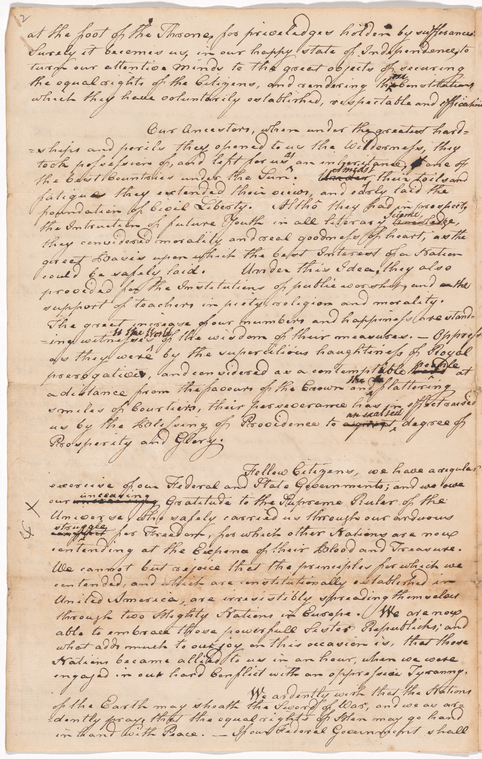 2
at the foot of the Throne, for priviledges holden by sufferance
Surely it becomes us, in our happy state of Independence, to
turn our attentive minds to the great objects of securing
the equal rights of the Citizens, and rendering the Constitutions
which they have voluntarily established, respectable and efficacious
Our Ancestors, when under the greatest hard-
-ships and perils they opened to us the Wilderness, they
took possession of, and left for us as an inheritance, one of
the best Countries under the Sun. Amidst
Under their Toils and
fatigues they extended their views, and early laid the
foundation of Civil Liberty. Altho they had in prospect,
the Instruction of future Youth in all literary Science
Knowledge,
they considered morality and real goodness of heart, as the
great basis upon which the best Interest of a Nation
could be safely laid. Under this Idea, they also
provided for the Institutions of public worship, and the
support of teachers in piety religion and morality.
The great increase of our numbers and happiness are stand-
to the World
-ing witnesses of the wisdom of their measures. Oppress
as they were by the supercilious haughteness of Royal
prerogatives, and considered as a contemptable people at
a distance from the favours of the Crown and the flattering
smiles of Courtiers, their perseverance has in effect raised
us by the blessing of Providence to an exalted degree of
Prosperity and Glory.
Fellow Citizens, we have a regular
exercise of our Federal and State Governments; and we owe
our unceasing Gratitude to the Supreme Ruler of the
Universe, who safely carried us through our arduous
struggle
conflict for Freedom, for which other Nations are now
contending at the Expence of their Blood and Treasure.
We cannot but rejoice that the principles for which we
contended, and which are constitutionally established in
United America, are irresistibly spreading themselves
through two Mighty Nations in Europe. We are now
able to embrace those powerfull Sister Republicks; and
what adds much to our joy on this occasion is, that those
Nations became allied to us in an hour, when we were
engaged in our hard Conflict with an oppressive Tyranny.
We ardently wish that the Nations
of the Earth may sheath the Sword of War, and we ar-
dently pray that the equal rights of Men may go hand
in hand with Peace. — If our Federal Government shall